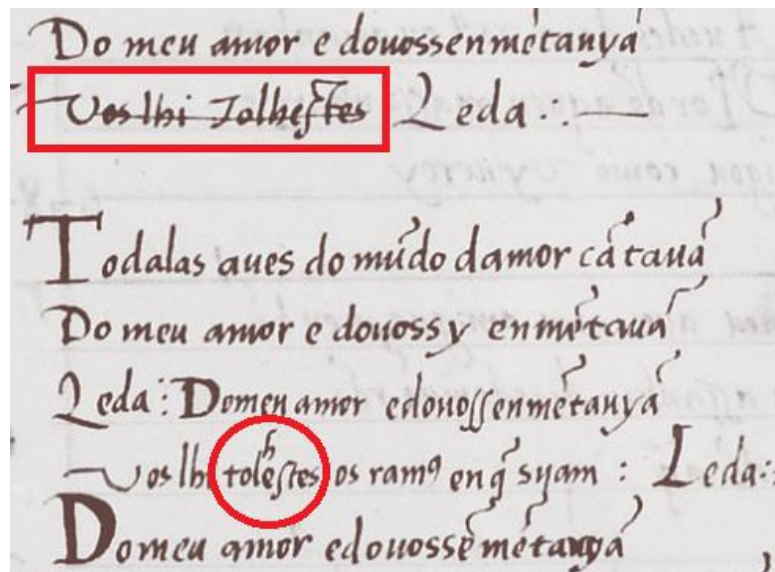 Do meu amor e douossenmẽtanyã
Vos lhi Tolhestes Leda .:
Todalas aues do mũdo damor cãtauã
Do meu amor e douossy enmẽtauã
Leda : Domeu amor edouossenmẽtanyã
Vos lhi tolhestes os ramꝯ enq̃ syam : Leda:
Domeu amor edouossẽmẽtauã